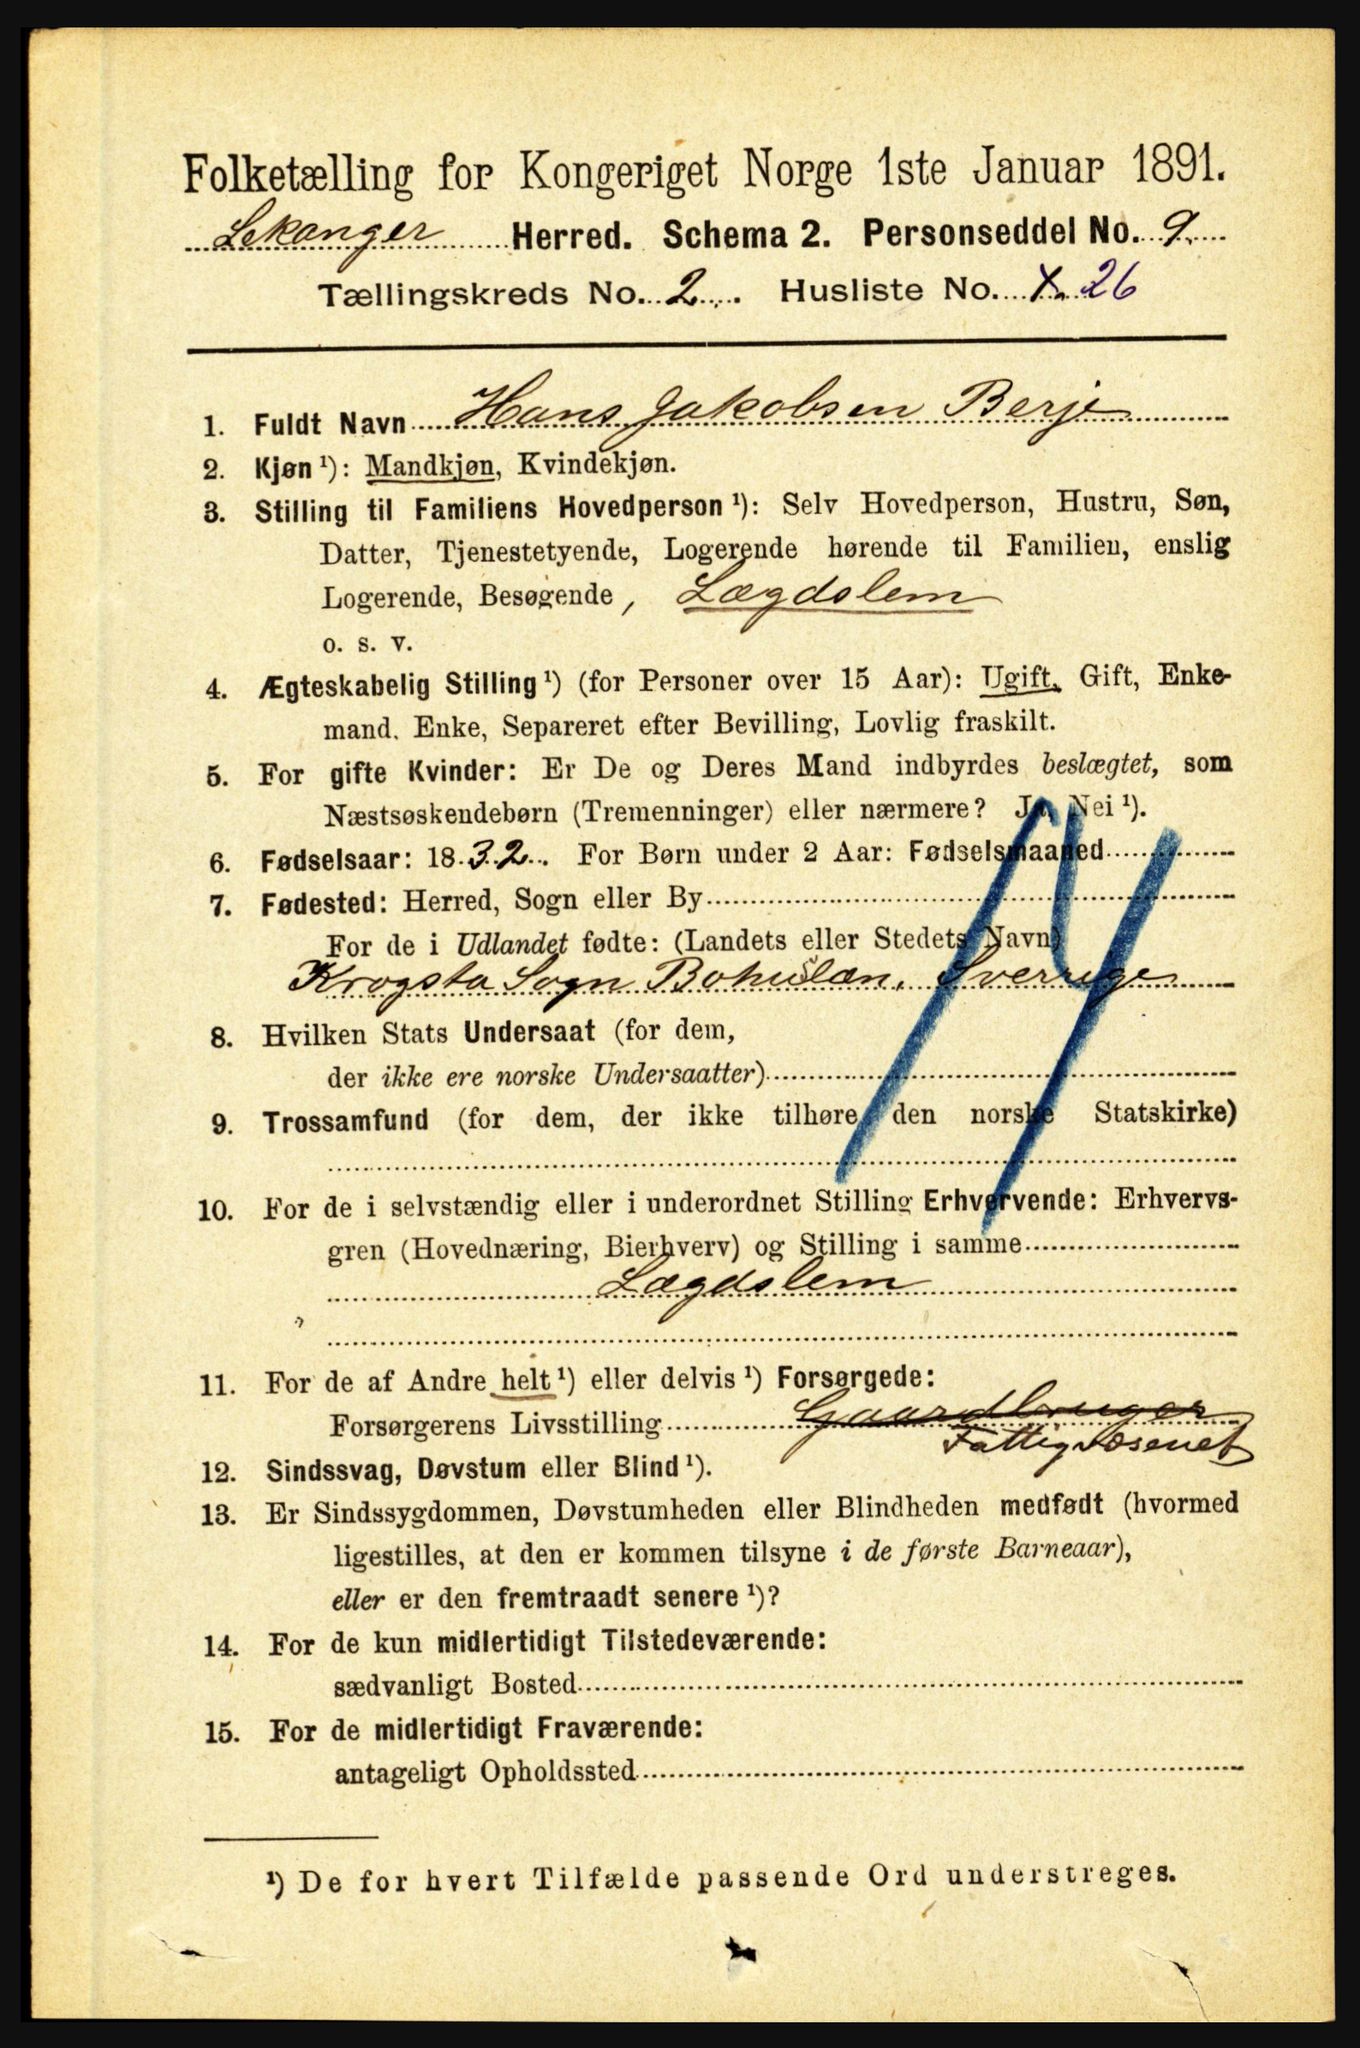 Folketælling for Kongeriget Norge 1ste Januar 1891.
Lekanger Herred. Schema 2. Personseddel No. 9.
Tællingskreds No. 2. Husliste No. 26
1. Fuldt Navn Hans Jakobsen Berje
2. Kjøn ¹): Mandkjøn, Kvindekjøn.
3. Stilling til Familiens Hovedperson ¹): Selv Hovedperson, Hustru, Søn,
Datter, Tjenestetyende, Logerende hørende til Familien, enslig
Logerende, Besøgende, Lægdslem
o. s. v.
4. Ægteskabelig Stilling ¹) (for Personer over 15 Aar): Ugift, Gift, Enke-
mand, Enke, Separeret efter Bevilling, Lovlig fraskilt.
5. For gifte Kvinder: Er De og Deres Mand indbyrdes beslægtet, som
Næstsøskendebørn (Tremenninger) eller nærmere? Ja, Nei ¹).
6. Fødselsaar: 1832. For Børn under 2 Aar: Fødselsmaaned
7. Fødested: Herred, Sogn eller By
For de i Udlandet fødte: (Landets eller Stedets Navn)
Krogsta Sogn Bohuslæn, Sverrige
8. Hvilken Stats Undersaat (for dem,
der ikke ere norske Undersaatter)
9. Trossamfund (for dem, der ikke tilhøre den norske Statskirke)
10. For de i selvstændig eller i underordnet Stilling Erhvervende: Erhvervs-
gren (Hovednæring, Bierhverv) og Stilling i samme
Lægdslem
11. For de af Andre helt ¹) eller delvis ¹) Forsørgede:
Forsørgerens Livsstilling Gaardbruger
Fattigvæsenet
12. Sindssvag, Døvstum eller Blind ¹).
13. Er Sindssygdommen, Døvstumheden eller Blindheden medfødt (hvormed
ligestilles, at den er kommen tilsyne i de første Barneaar),
eller er den fremtraadt senere ¹)?
14. For de kun midlertidigt Tilstedeværende:
sædvanligt Bosted
15. For de midlertidigt Fraværende:
antageligt Opholdssted
¹) De for hvert Tilfælde passende Ord understreges.